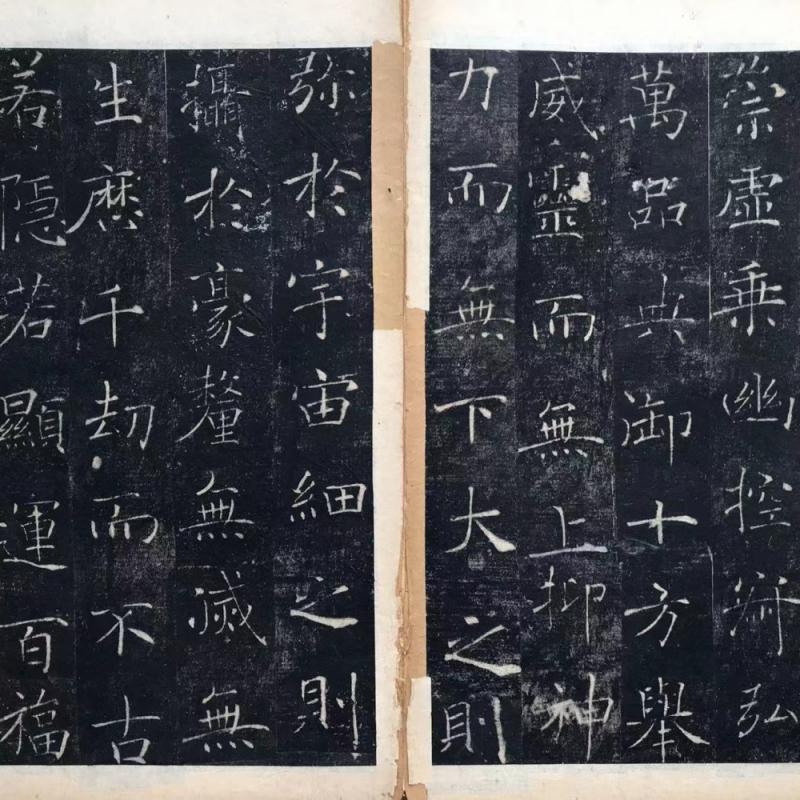 崇虛乘幽控寂弘
萬品典御十方舉
威靈而無上抑神
力而無下大之則
弥於宇宙細之則
攝於豪釐無滅無
生歷千劫而不古
若隱若顯運百福